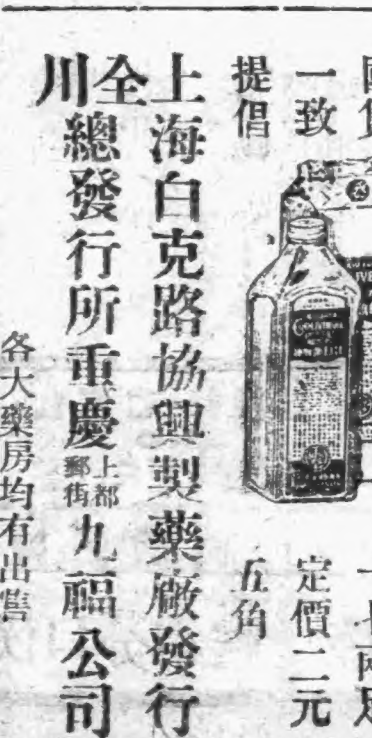 國貨
一致
提倡
定價二元
五角
上海白克路協興製藥廠發行
全川總發行所重慶上都郵街九福公司
各大藥房均有出售